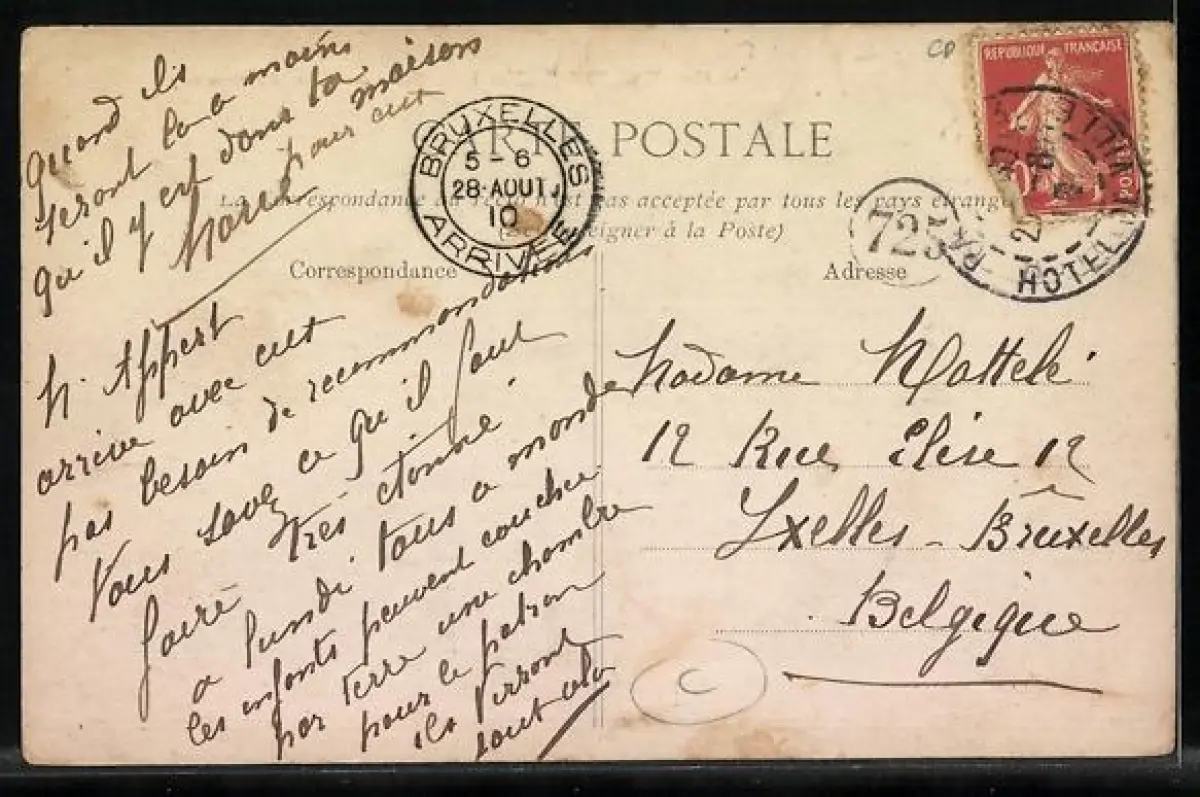 CARTE POSTALE
La Correspondance au recto n'est pas acceptée par tous les pays étrangers
(Se renseigner à la Poste)
Correspondance
Adresse
REPUBLIQUE FRANÇAISE
BRUXELLES
5-6
28 AOUT
10
ARRIVÉE
725
HOTEL DE VILLE
CD
C
quand ils
seront la a moins
qu'il y est dans ta maison
pour eut
M. Appert
arrive avec eut
pas besoin de recommandations
Vous savez ce qu'il faut
faire très étonné
a lundi tous a monde
les enfants peuvent coucher
par terre une chambre
pour le patron
ils verront
tout cela
Madame Mattelé
12 Rue Elise 12
Ixelles - Bruxelles
Belgique